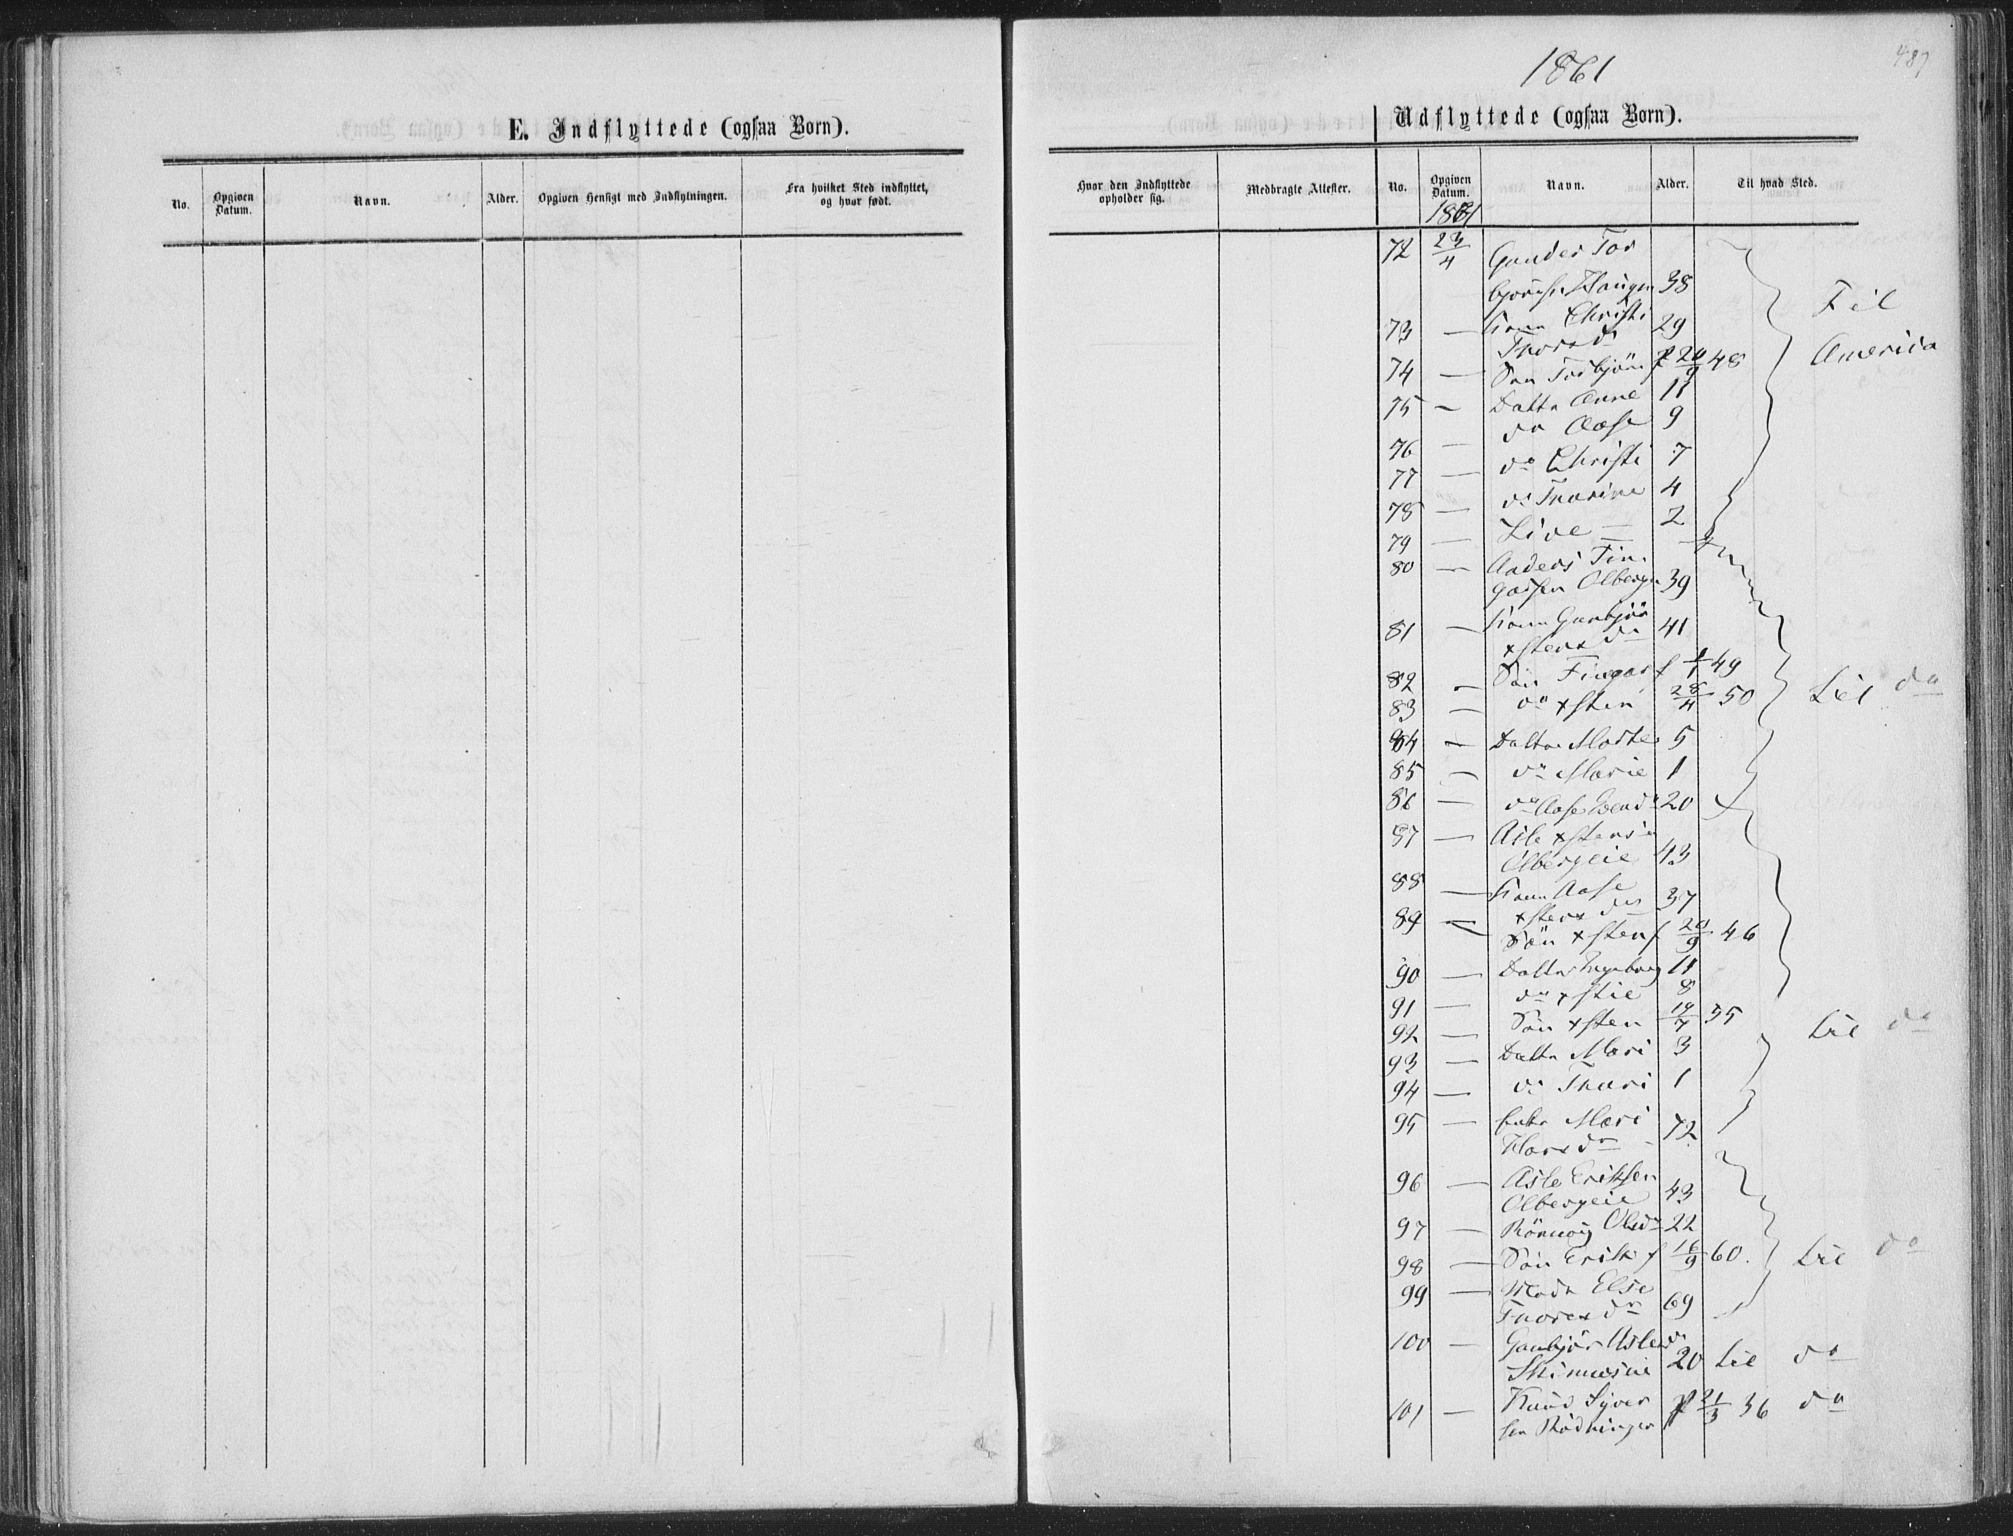 1861
487
E. Indflyttede (ogsaa Børn).
Udflyttede (ogsaa Børn).
No.
Opgiven Datum.
Navn.
Alder.
Opgiven Hensigt med Indflytningen.
Fra hvilket Sted indflyttet, og hvor født.
Hvor den Indflyttede opholder sig.
Medbragte Attester.
No.
Opgiven Datum.
Navn.
Alder.
Til hvad Sted.
1861
72 23/4 Gunder Tor
bjørns. Haugen 38
Til
73 — Kone Christi 29
Thorsd
America
74 — Søn Torbjørn f 20/9 48
75 — Datter Anne 11
76 — do Aase 9
77 — do Christi 7
78 — do Thorine 4
79 — Live — 2
80 — Anders Fin
garsen Olbergei 39
81 — Kone Gunbjør 41
xstensd
82 — Søn Fingar f 1/1 49
83 — do xsten 28/4 50
til do
84 — Datter Marthe 5
85 — do Marie 1
86 — do Aase d 20
87 — Asle xstensen
Olbergeie 43
88 — Kone Aase 37
xstensd
89 — Søn xsten f 20/9 46
90 — Datter Ingeborg 11
91 — do xstie 8
92 — Søn xsten 19/7 35
til do
93 — Datter Mari 3
94 — do Thuri 1
95 — Enke Mari 72
Hansd
96 — Asle Eriksen
Olbergeie 43
97 — Rönnaug Olsd 22
98 — Søn Erik f 16/9 60. til do
99 — Mode Else
Thorsd 69
100 — Gunbjør Aslesd
20 til do
101 — Knud Syver f 21/3 36 do
sen Rødningen